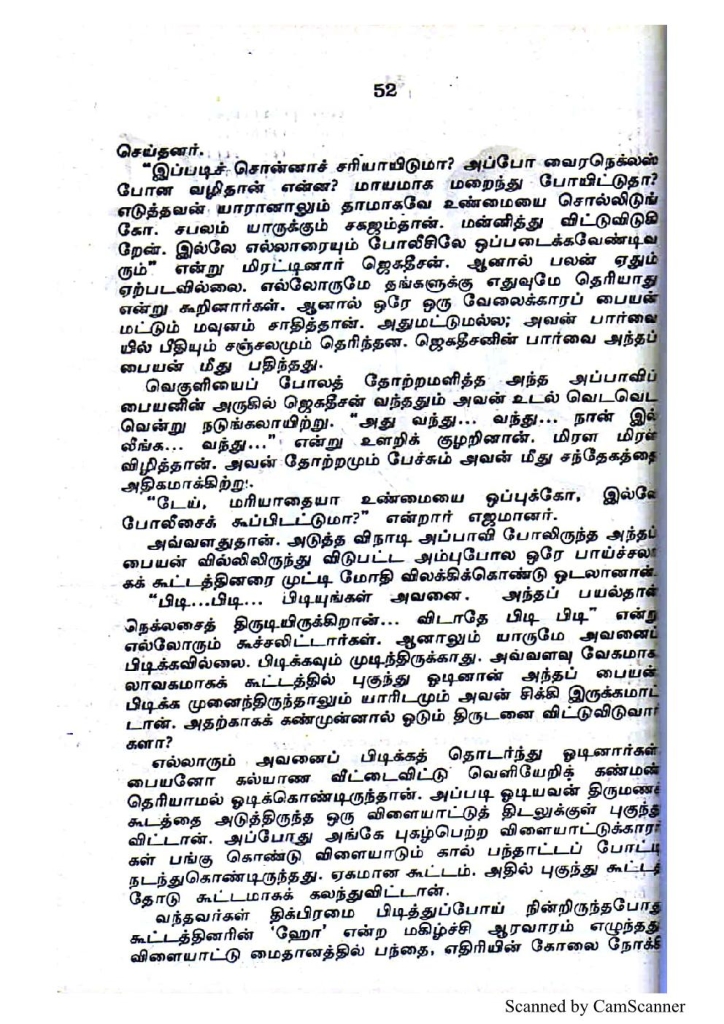 52
செய்தனர்.
“இப்படிச் சொன்னாச் சரியாயிடுமா? அப்போ வைரநெக்லஸ்
போன வழிதான் என்ன? மாயமாக மறைந்து போயிட்டுதா?
எடுத்தவன் யாரானாலும் தாமாகவே உண்மையை சொல்லிடுங்
கோ. சபலம் யாருக்கும் சகஜம்தான். மன்னித்து விட்டுவிடுகி
றேன். இல்லே எல்லாரையும் போலீசிலே ஒப்படைக்கவேண்டிவ
ரும்” என்று மிரட்டினார் ஜெகதீசன். ஆனால் பலன் ஏதும்
ஏற்படவில்லை. எல்லோருமே தங்களுக்கு எதுவுமே தெரியாது
என்று கூறினார்கள். ஆனால் ஒரே ஒரு வேலைக்காரப் பையன்
மட்டும் மவுனம் சாதித்தான். அதுமட்டுமல்ல; அவன் பார்வை
யில் பீதியும் சஞ்சலமும் தெரிந்தன. ஜெகதீசனின் பார்வை அந்தப்
பையன் மீது பதிந்தது.
வெகுளியைப் போலத் தோற்றமளித்த அந்த அப்பாவிப்
பையனின் அருகில் ஜெகதீசன் வந்ததும் அவன் உடல் வெடவெட
வென்று நடுங்கலாயிற்று. “அது வந்து... வந்து... நான் இல்
லீங்க... வந்து...” என்று உளறிக் குழறினான். மிரள மிரள
விழித்தான். அவன் தோற்றமும் பேச்சும் அவன் மீது சந்தேகத்தை
அதிகமாக்கிற்று.
“டேய், மரியாதையா உண்மையை ஒப்புக்கோ, இல்லே
போலீசைக் கூப்பிடட்டுமா?” என்றார் எஜமானர்.
அவ்வளவுதுதான். அடுத்த விநாடி அப்பாவி போலிருந்த அந்தப்
பையன் வில்லிலிருந்து விடுபட்ட அம்புபோல ஒரே பாய்ச்சலா
கக் கூட்டத்தினரை முட்டி மோதி விலக்கிக்கொண்டு ஓடலானான்.
“பிடி...பிடி... பிடியுங்கள் அவனை. அந்தப் பயல்தான்
நெக்லசைத் திருடியிருக்கிறான்... விடாதே பிடி பிடி” என்று
எல்லோரும் கூச்சலிட்டார்கள். ஆனாலும் யாருமே அவனைப்
பிடிக்கவில்லை. பிடிக்கவும் முடிந்திருக்காது. அவ்வளவு வேகமாக
லாவகமாகக் கூட்டத்தில் புகுந்து ஓடினான் அந்தப் பையன்.
பிடிக்க முனைந்திருந்தாலும் யாரிடமும் அவன் சிக்கி இருக்கமாட்
டான். அதற்காகக் கண்முன்னால் ஓடும் திருடனை விட்டுவிடுவார்
களா?
எல்லாரும் அவனைப் பிடிக்கத் தொடர்ந்து ஓடினார்கள்
பையனோ கல்யாண வீட்டைவிட்டு வெளியேறிக் கண்மண்
தெரியாமல் ஓடிக்கொண்டிருந்தான். அப்படி ஓடியவன் திருமணக்
கூடத்தை அடுத்திருந்த ஒரு விளையாட்டுத் திடலுக்குள் புகுந்து
விட்டான். அப்போது அங்கே புகழ்பெற்ற விளையாட்டுக்காரர்
கள் பங்கு கொண்டு விளையாடும் கால் பந்தாட்டப் போட்டி
நடந்துகொண்டிருந்தது. ஏகமான கூட்டம். அதில் புகுந்து கூட்டத்
தோடு கூட்டமாகக் கலந்துவிட்டான்.
வந்தவர்கள் திக்பிரமை பிடித்துப்போய் நின்றிருந்தபோது
கூட்டத்தினரின் ‘ஹோ’ என்ற மகிழ்ச்சி ஆரவாரம் எழுந்தது
விளையாட்டு மைதானத்தில் பந்தை, எதிரியின் கோலை நோக்கி
Scanned by CamScanner